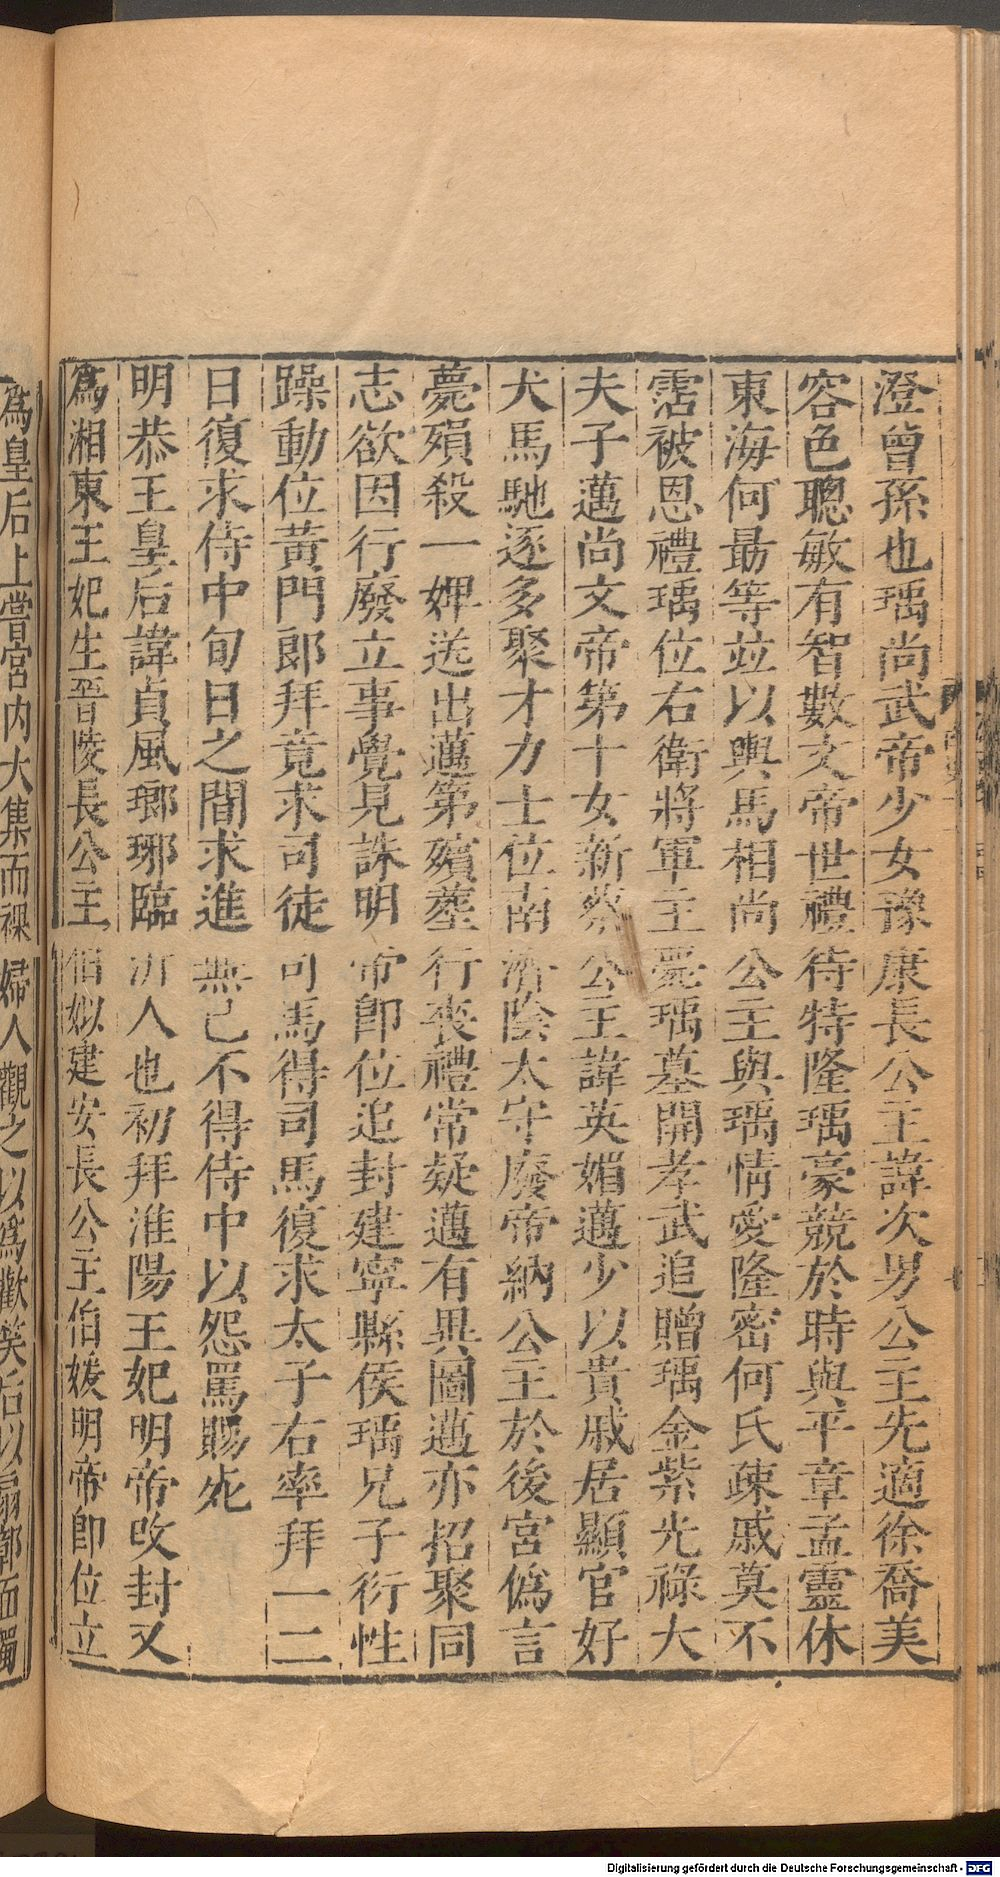 澄曾孫也瑀尚武帝少女豫康長公主諱次男公主先適徐喬美
容色聰敏有智數文帝世禮待特隆瑀豪競於時與平章孟靈休
東海何勗等竝以輿馬相尚公主與瑀情愛隆密何氏疎戚莫不
霑被恩禮瑀位右衛將軍主薨瑀墓開孝武追贈瑀金紫光祿大
夫子邁尚文帝第十女新蔡公主諱英媚邁少以貴戚居顯官好
犬馬馳逐多聚才力士位南濟陰太守廢帝納公主於後宮偽言
薨殞殺一婢送出邁第殯葬行喪禮常疑邁有異圖邁亦招聚同
志欲因行廢立事覺見誅明帝即位追封建寧縣侯瑀兄子衍性
躁動位黃門郎拜竟求司徒司馬得司馬復求太子右率拜一二
日復求侍中旬日之間求進無已不得侍中以怨罵賜死
明恭王皇后諱貞風瑯琊臨沂人也初拜淮陽王妃明帝改封又
爲湘東王妃生晉陵長公主伯姒建安長公主伯媛明帝即位立
爲皇后上嘗宮內大集而裸婦人觀之以爲歡笑后以扇鄣面獨
Digitalisierung gefördert durch die Deutsche Forschungsgemeinschaft - DFG